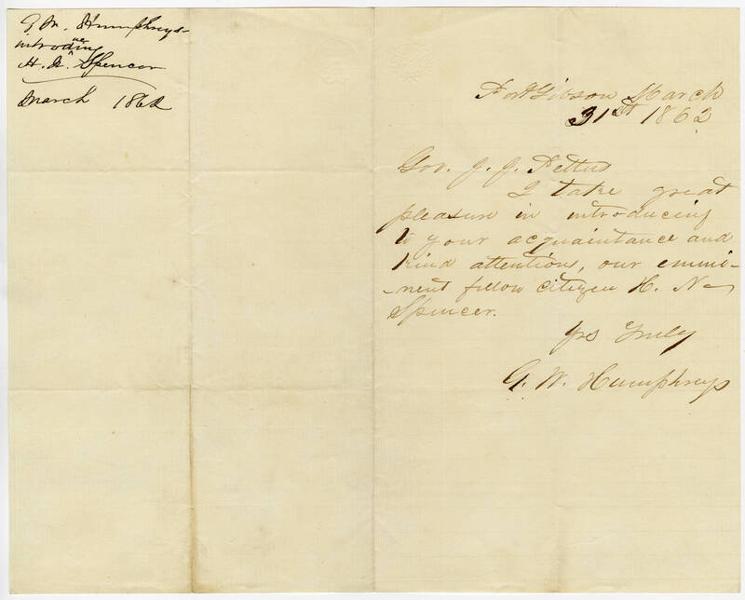 G. W. Humphreys-
introducing
H. N. Spencer
March 1862
Port Gibson March
31st 1862
Gov. J. J. Pettus
I take great
pleasure in introducing
to your acquaintance and
kind attention, our emmi-
-nent fellow citizen H. N-
Spencer.
Yrs Truly
G. W. Humphreys